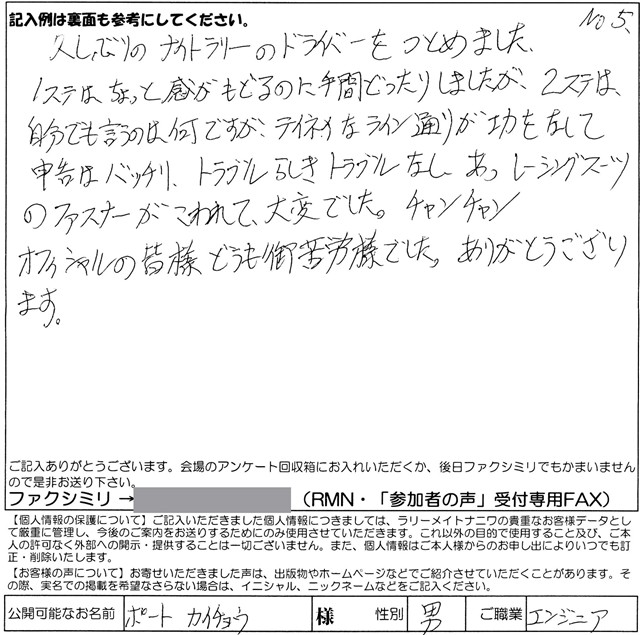 記入例は裏面も参考にしてください。
No 5、
久しぶりのナイトラリーのドライバーをつとめました、
1ステはちょっと感がもどるのに手間どったりしましたが、2ステは、
自分でも言うのは何ですが、テイネイなライン通りが功を左して
申告はバッチリ、トラブルらしきトラブルなし あっ レーシングスーツ
のファスナーがこわれて、大変でした。チャンチャン
オフィシャルの皆様どうも御苦労様でした。ありがとうござり
ます。
ご記入ありがとうございます。会場のアンケート回収箱にお入れいただくか、後日ファクシミリでもかまいません
ので是非お送り下さい。
ファクシミリ → （RMN・「参加者の声」受付専用FAX）
【個人情報の保護について】ご記入いただきました個人情報につきましては、ラリーメイトナニワの貴重なお客様データとし
て厳重に管理し、今後のご案内をお送りするためにのみ使用させていただきます。これ以外の目的で使用すること及び、ご本
人の許可なく外部への開示・提供することは一切ございません。また、個人情報はご本人様からのお申し出によりいつでも訂
正・削除いたします。
【お客様の声について】お寄せいただきました声は、出版物やホームページなどでご紹介させていただくことがあります。そ
の際、実名での掲載を希望なさらない場合は、イニシャル、ニックネームなどをご記入ください。
公開可能なお名前 ポート カイチョウ 様 性別 男 ご職業 エンジニア